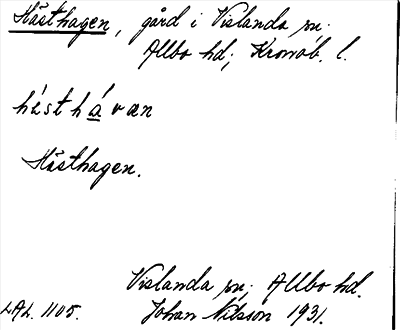 Hästhagen, gård i Vislanda sn.
Allbo hd; Kronob. l.
hésth á væn
Hästhagen.
Vislanda sn; Allbo hd.
LAL. 1105. Johan Nilsson 1931.